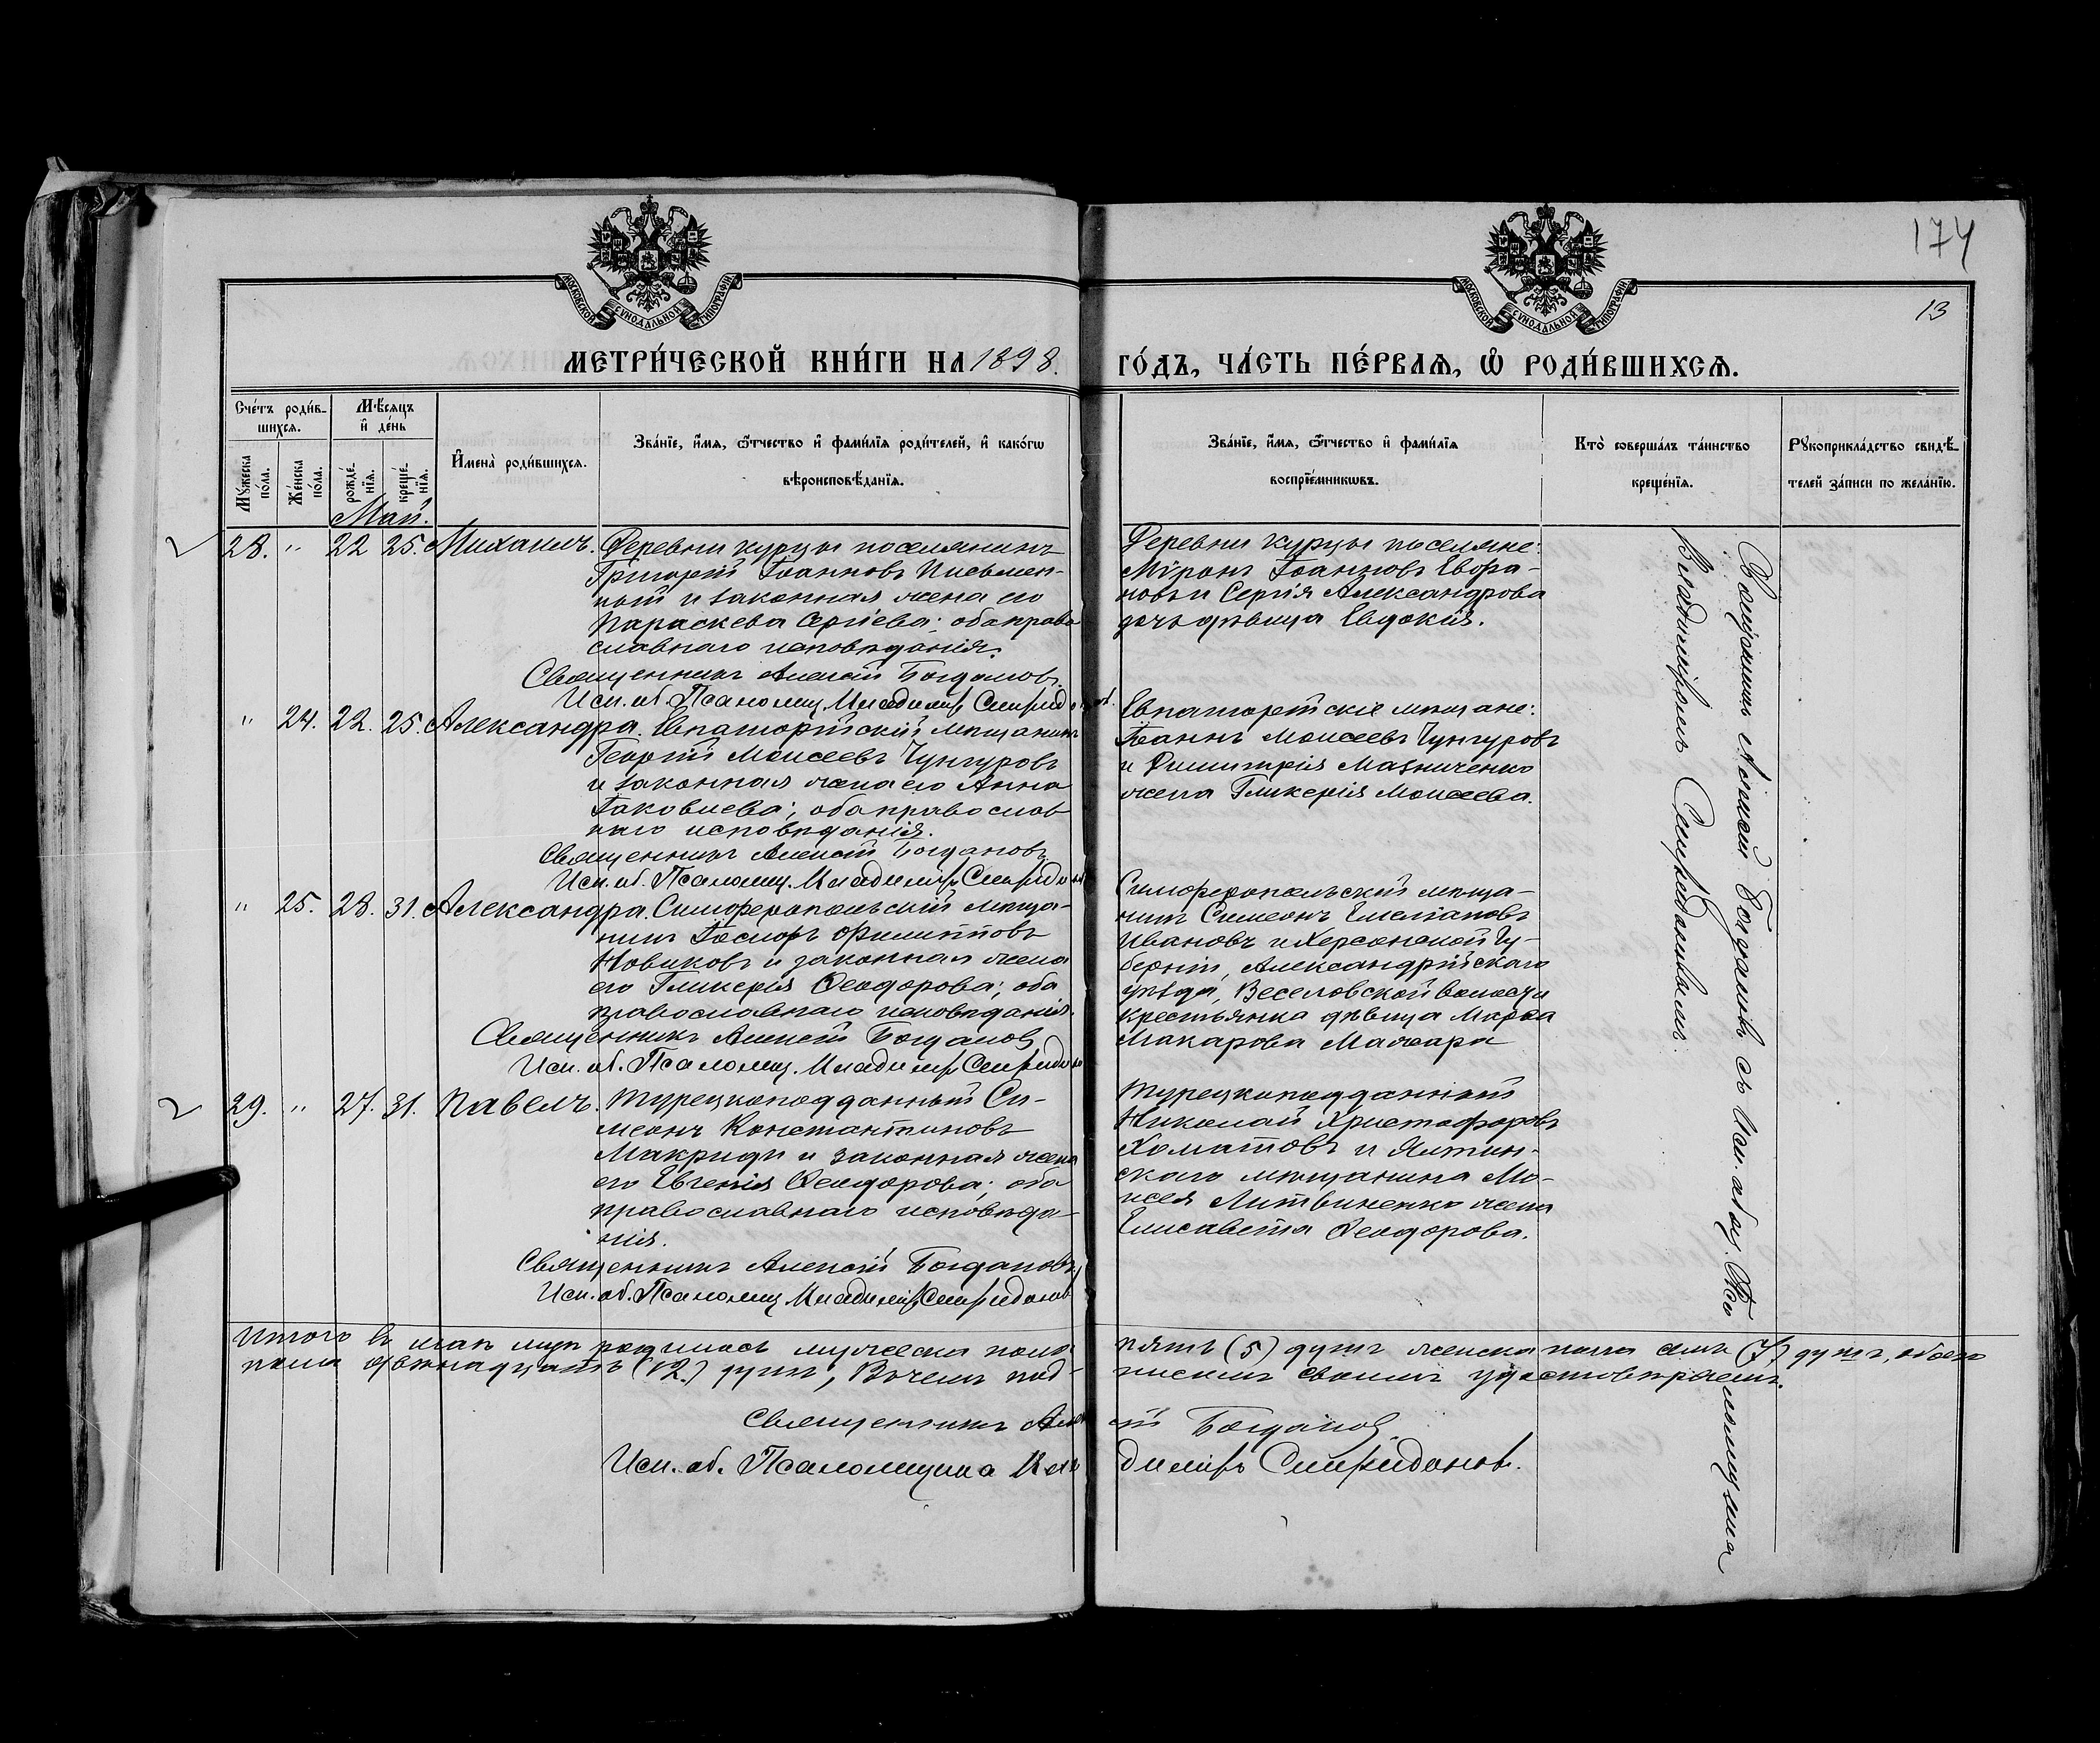 174
13
МОСКОВСКОЙ СѴНОДАЛЬНОЙ ТИПОГРАФІИ
МОСКОВСКОЙ СѴНОДАЛЬНОЙ ТИПОГРАФІИ
МЕТРИ́ЧЕСКОЙ КНИ́ГИ НА 1898. ГО́ДЪ, ЧА́СТЬ ПЕ́РВАѦ, Ѡ҆ РОДИ́ВШИХСѦ.
Сче́тъ роди́в-
шихсѧ.
Мꙋ́жеска по́ла.
Же́нска по́ла.
Мѣ́сѧцъ
и҆ де́нь
рожде́-
нїѧ.
креще́-
нїѧ.
И҆мена̀ роди́вшихсѧ.
Зва́нїе, и҆́мѧ, ѻ҆́тчество и҆ фами́лїѧ роди́телей, и҆ како́гѡ
вѣроисповѣ́данїѧ.
Зва́нїе, и҆́мѧ, ѻ҆́тчество и҆ фами́лїѧ
воспрїе́мникѡвъ.
Кто̀ соверша́лъ та́инство
креще́нїѧ.
Рꙋкоприкла́дство свидѣ́-
телей за́писи по жела́нїю.
Май.
28. " 22 25. Михаилъ. Деревни Курцы поселянинъ
Григорій Іоанновъ Письмен-
ный и законная жена его
Параскева Сергіева; оба право
славнаго исповѣданія.
Священникъ Алексій Богдановъ.
Исп. об. Псаломщ. Владиміръ Спиридоновъ.
Деревни Курцы поселяне:
Миронъ Іоанновъ Евфра-
новъ и Сергія Александрова
дочь дѣвица Евдокія.
" 24. 22. 25. Александра. Евпаторійскій мѣщанинъ
Георгій Моисеевъ Чунгуровъ
и законная жена его Анна
Іаковлева; оба православ
наго исповѣданія.
Священникъ Алексій Богдановъ
Исп. об. Псаломщ. Владиміръ Спиридонов
Евпаторійскіе мѣщане:
Іоаннъ Моисеевъ Чунгуровъ
и Димитрія Мазниченко
жена Гликерія Моисеева.
" 25. 28. 31. Александра. Симферопольскій мѣща-
нинъ Филипповъ
Новиковъ и законная жена
его Гликерія Ѳеодорова; оба
православнаго исповѣданія.
Священникъ Алексій Богданов
Исп. об. Псаломщ. Владиміръ Спиридоно
Симферопольскій мѣща-
нинъ Симеонъ Емеліановъ
Ивановъ и Херсонской гу-
берніи, Александрійскаго
уѣзда, Веселовской волости
крестьянка дѣвица Марѳа
Макарова Мажара
29. " 27. 31. Павелъ. Турецкоподданный Си-
меонъ Константиновъ
Макриди и законная жена
его Евгенія Ѳеодорова; оба
православнаго исповѣда-
нія.
Священникъ Алексій Богдановъ
Исп. об. Псаломщ. Владиміръ Спиридонов
Турецкоподданный
Николай Христофоровъ
Хоматовъ и Ялтин-
скаго мѣщанина Мо-
исея Литвиненко жена
Елисавета Ѳеодорова.
Священникъ Алексій Богдановъ съ Исп. обяз. Псаломщика
Владиміромъ Спиридоновымъ.
Итого въ маѣ мцѣ родилось мужеска пола пять (5) душъ женска пола семь (7) душъ, обоего
пола двѣнадцать (12) душъ, въ чемъ под- писемъ своимъ удостовѣряемъ.
Священникъ Алексій Богданов.
Исп. об. Псаломщика Владиміръ Спиридонов.